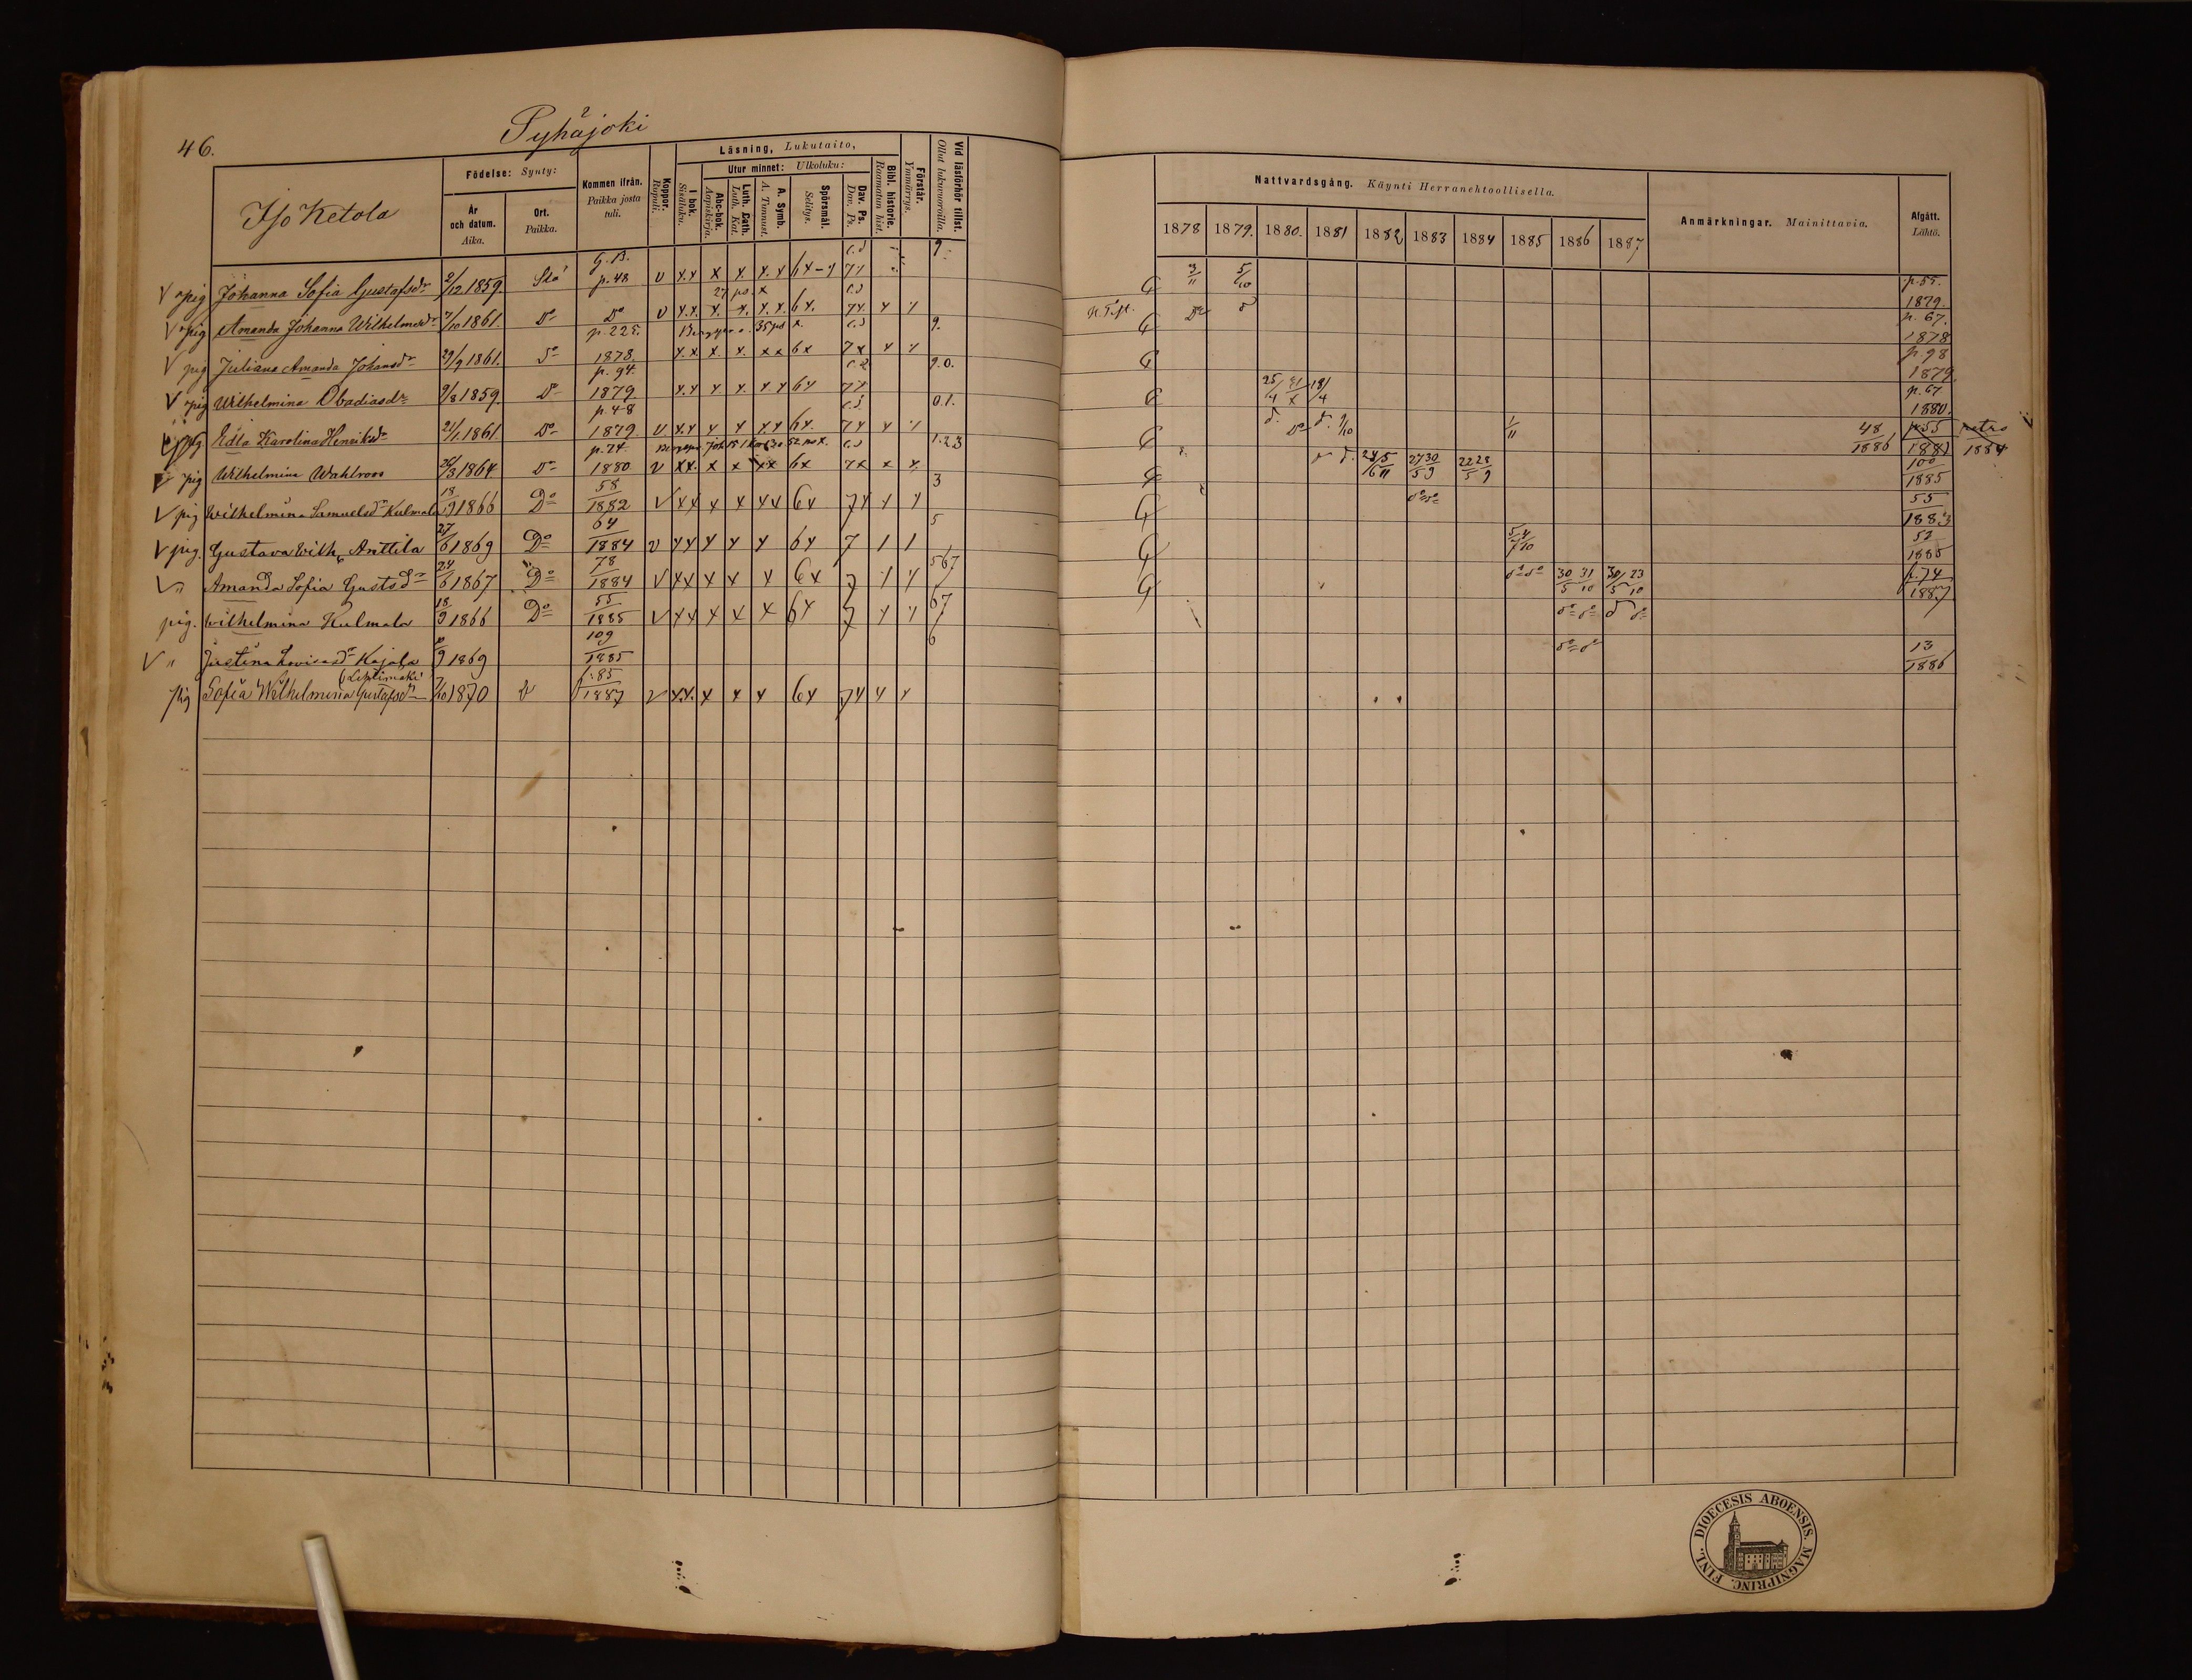 46.
Pyhäjoki
Iso Ketola
Födelse: Synty:
År och datum. Aika.
Ort. Paikka.
Kommen ifrån. Paikka josta tuli.
Koppor. Rupuli.
Läsning, Lukutaito,
I bok. Sisäluku.
Utur minnet: Ulkoluku:
Abc-bok. Aapiskirja.
Luth. Cath. Luth. Kat.
A. Symb. A. Tunnust.
Spörsmål. Selitys.
Dav. Ps. Dav. Ps.
Bibl. historie. Raamatun hist.
Förstår. Ymmärrys.
Vid läsförhör tillst. Ollut lukuvuorolla.
Nattvardsgång. Käynti Herranehtoollisella.
1878 1879. 1880. 1881 1882 1883 1884 1885 1886 1887
Anmärkningar. Mainittavia.
Afgått. Lähtö.
V pig Johanna Sofia Gustafsdr 2/12 1859. G.B. p. 48 v x.x x x. x.x 6x-x 7x 9 G 3/11 5/10 p. 55. 1879.
V pig Amanda Johanna Wilhelmsdr 7/10 1861. Do Do v x.x. x. x. x.x. 6x. 7x. x x G Do p. 67. 1878
V pig Juliana Amanda Johansdr 29/9 1861. Do p. 225. 1878. x.x x. x. xx 6x 7x x x 9. G p 98 1879
V pig Wilhelmina Obadiasdr 9/8 1859. Do p. 94 1879 x.x x x. x x 6x 7x 9.0. G 25/4 18/4 p. 67 1880.
pig Edla Karolina Henriksdr 21/1 1861. Do p. 48 1879. v x.x x x x.x 6x. 7x x x 0.1. G 9/10 1/11 48/1886 p 55 1883 retro 1884
pig Wilhelmina Wahlroos 26/3 1864. Do p. 74 1880 v xx. x x xx 6x 7x x x. 1.2.3 G 27/5 30/9 22/5 28/9 100 1885
V pig Wilhelmina Samuelsdr Kulmala 18/9 1866 Do 58/1882 v xx x x xx 6x 7x x x 3 G 55 1883
V pig. Gustava Wilh. Anttila 27/6 1869 Do 64/1884 v xx x x x 6x 7 1 1 5 G 52 1885
V " Amanda Sofia Gustsdr 24/6 1867 Do 78/1884 v xx x x x 6x 7 1 x 567 G 30/5 31/10 30/5 23/10 p. 74 1887
pig. Wilhelmina Kulmala 18/9 1866 Do 55/1885 v xx x x x 6x 7 x x 67
V " Justina Lovisasdr Kajala 9 1869 109/1885 6 13 1886
pig Sofia Wilhelmina Gustafsdr (Lehtimäki) 7/10 1870 p. 85 1887 v xx. x x x 6x 7x x x
DIOECESIS ABOENSIS. MAGNI PRINC. FINL.